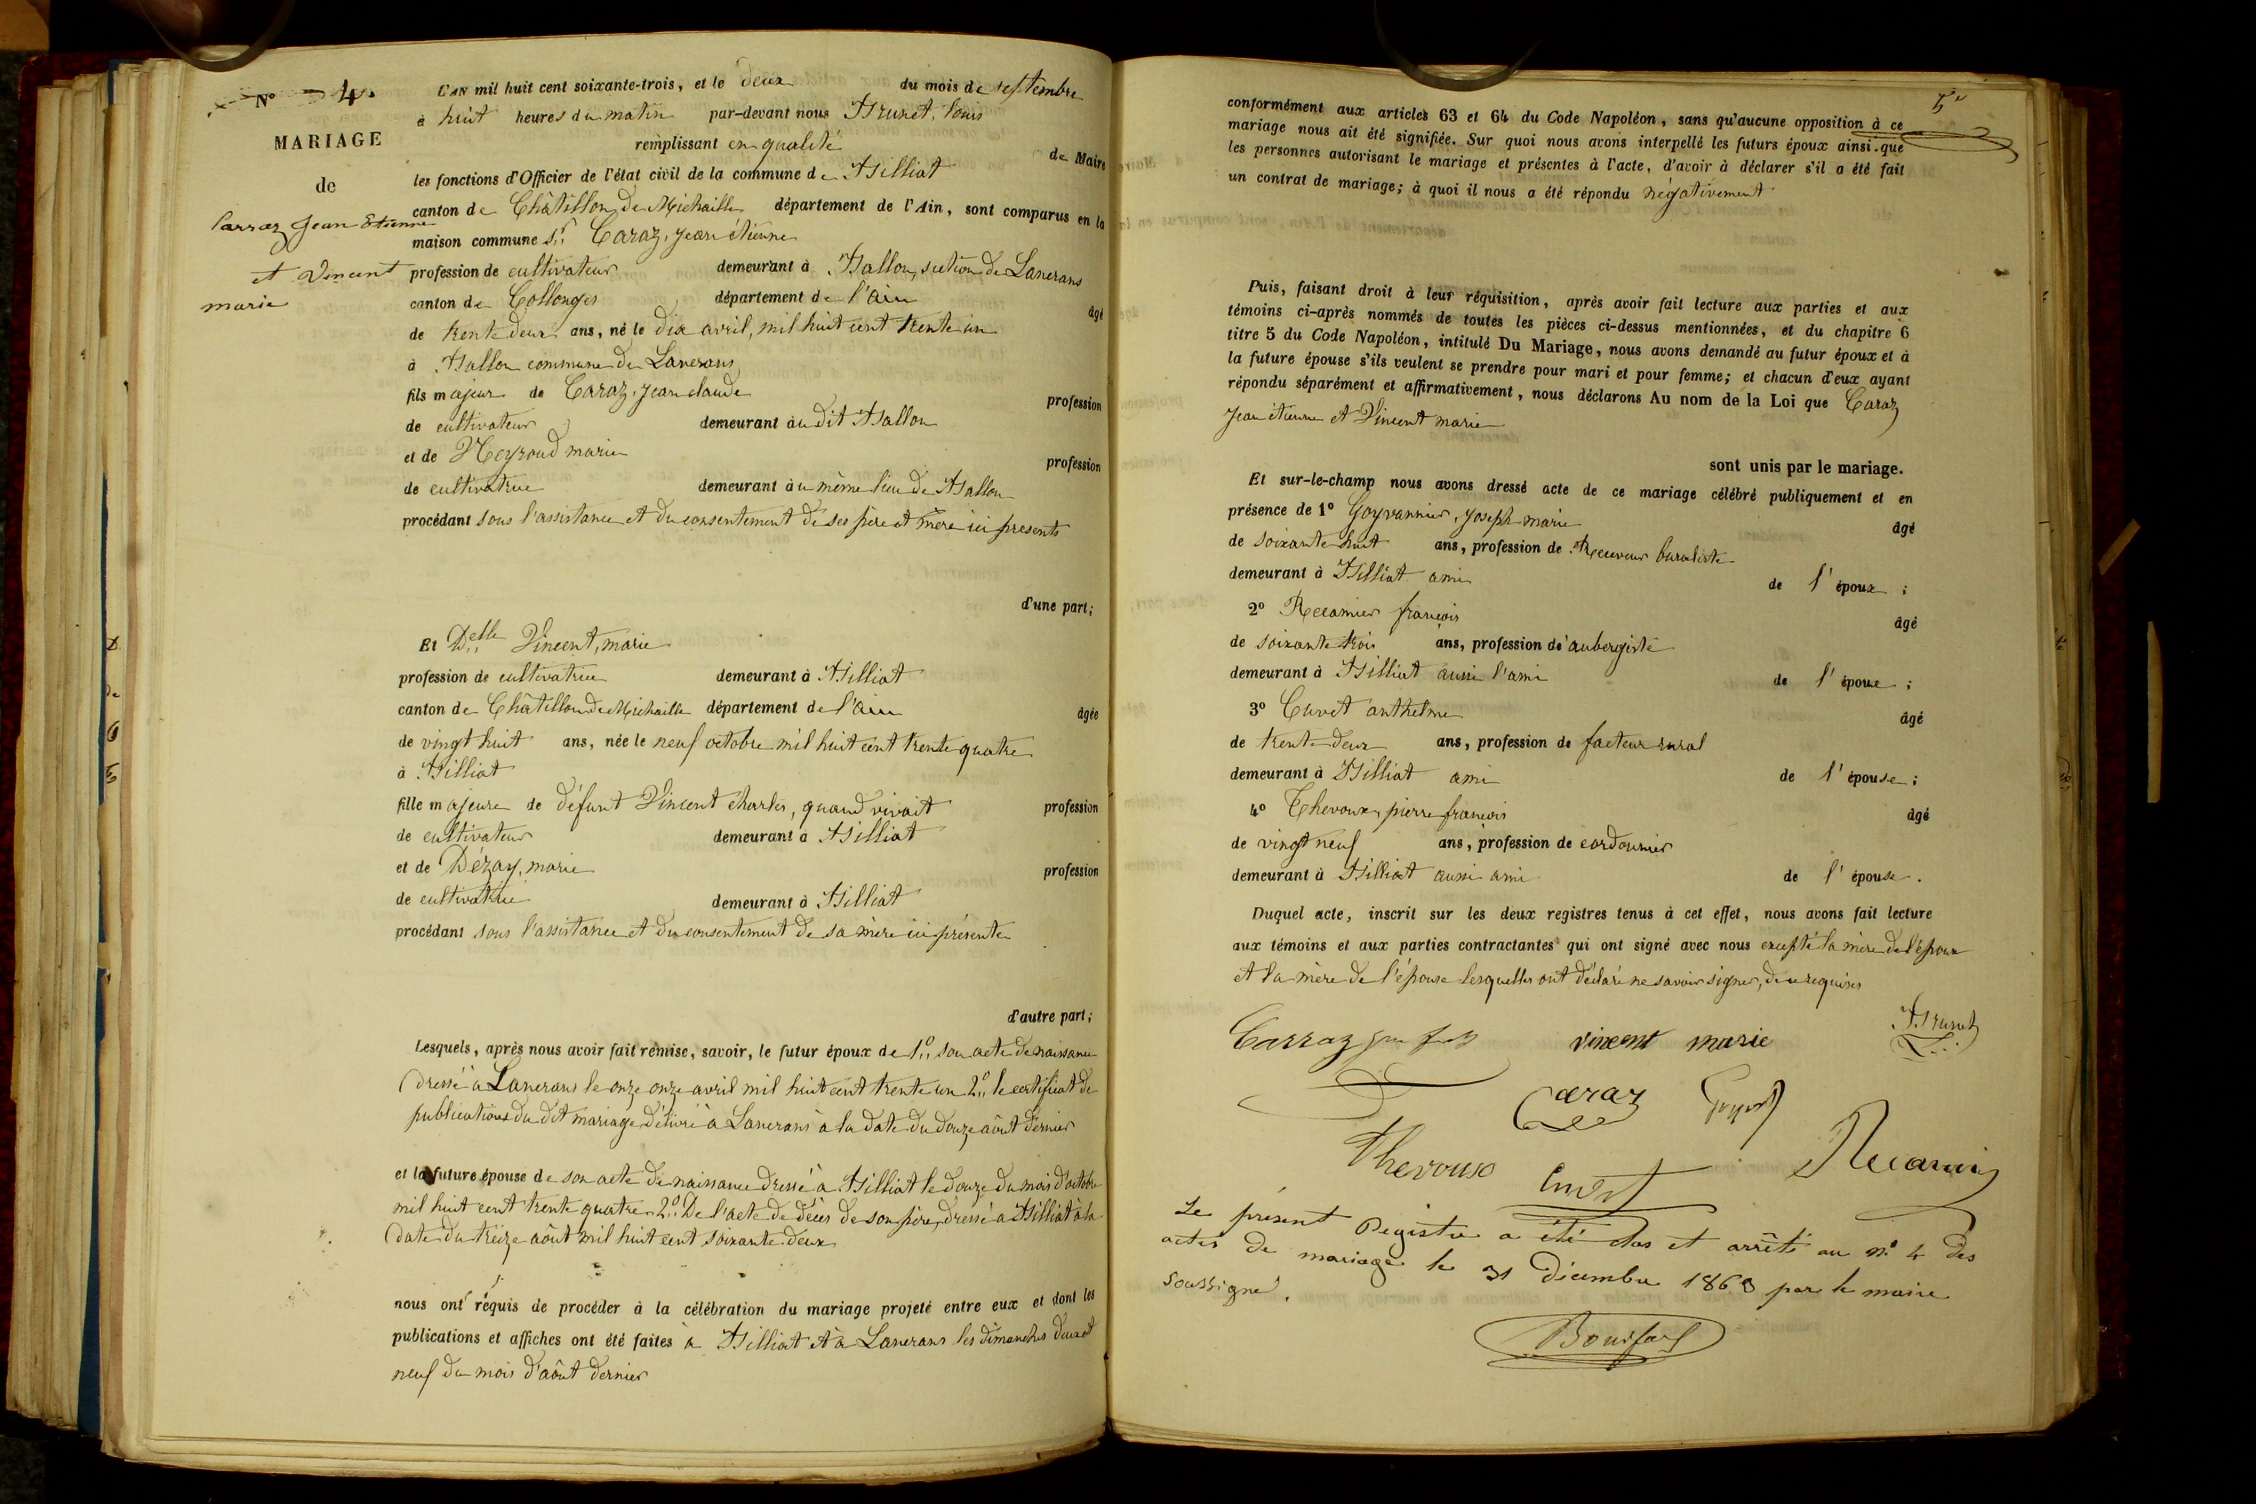 N° 4.
MARIAGE
de
Carraz Jean Etienne
et Vincent
marie
L'AN mil huit cent soixante-trois, et le deux du mois de septembre
à huit heures du matin par-devant nous Brunet, louis
remplissant en qualité de Maire
les fonctions d'Officier de l'état civil de la commune de Billiat
canton de Châtillon de Michaille département de l'Ain, sont comparus en la
maison commune Sr Caraz, Jean étienne
profession de cultivateur demeurant à Ballon, section de Lancrans
canton de Collonges département de l'ain âgé
de trente deux ans, né le dix avril, mil huit cent trente un
à Ballon commune de Lancrans
fils majeur de Caraz, Jean claude profession
de cultivateur demeurant au dit Ballon
et de Neyroud marie profession
de cultivatrice demeurant au même lieu de Ballon
procédant sous l'assistance et du consentement de ses père et mère ici présents
d'une part;
Et Delle Vincent, marie
profession de cultivatrice demeurant à Billiat
canton de Châtillon de Michaille département de l'ain âgée
de vingt huit ans, née le neuf octobre mil huit cent trente quatre
à Billiat
fille majeure de défunt Vincent charles, quand vivait profession
de cultivateur demeurant à Billiat
et de Dézay, marie profession
de cultivatrice demeurant à Billiat
procédant sous l'assistance et du consentement de sa mère ici présente
d'autre part;
Lesquels, après nous avoir fait remise, savoir, le futur époux de 1° son acte de naissance
dressé à Lancrans le onze onze avril mil huit cent trente un 2° le certificat de
publications du dit mariage délivré à Lancrans à la date du douze août dernier
et la future épouse de son acte de naissance dressé à Billiat le douze du mois d'octobre
mil huit cent trente quatre 2° De l'acte de décès de son père, dressé à Billiat à la
date du treize août mil huit cent soixante deux
nous ont réquis de procéder à la célébration du mariage projeté entre eux et dont les
publications et affiches ont été faites à Billiat et à Lancrans les dimanches deux et
neuf du mois d'août dernier
5
conformément aux articles 63 et 64 du Code Napoléon, sans qu'aucune opposition à ce
mariage nous ait été signifiée. Sur quoi nous avons interpellé les futurs époux ainsi que
les personnes autorisant le mariage et présentes à l'acte, d'avoir à déclarer s'il a été fait
un contrat de mariage; à quoi il nous a été répondu négativement
Puis, faisant droit à leur réquisition, après avoir fait lecture aux parties et aux
témoins ci-après nommés de toutes les pièces ci-dessus mentionnées, et du chapitre 6
titre 5 du Code Napoléon, intitulé Du Mariage, nous avons demandé au futur époux et à
la future épouse s'ils veulent se prendre pour mari et pour femme; et chacun d'eux ayant
répondu séparément et affirmativement, nous déclarons Au nom de la Loi que Caraz
Jean étienne et Vincent marie
sont unis par le mariage.
Et sur-le-champ nous avons dressé acte de ce mariage célébré publiquement et en
présence de 1° Goyvannier, Joseph marie âgé
de soixante huit ans, profession de Receveur buraliste
demeurant à Billiat ami de l'époux ;
2° Recamier françois âgé
de soixante trois ans, profession d'aubergiste
demeurant à Billiat aussi l'ami de l'épouse ;
3° Curet anthelme âgé
de trente deux ans, profession de facteur rural
demeurant à Billiat ami de l'épouse ;
4° Thevoux, pierre françois âgé
de vingt neuf ans, profession de cordonnier
demeurant à Billiat aussi ami de l'épouse.
Duquel acte, inscrit sur les deux registres tenus à cet effet, nous avons fait lecture
aux témoins et aux parties contractantes qui ont signé avec nous excepté la mère de l'époux
et la mère de l'épouse lesquelles ont déclaré ne savoir signer, de ce requises
Brunet
Carraz vincent marie
Caraz
Thevoux Curet Recamier
Le présent Registre a été clos et arrêté au n° 4 des
actes de mariage le 31 décembre 1863 par le maire
soussigné.